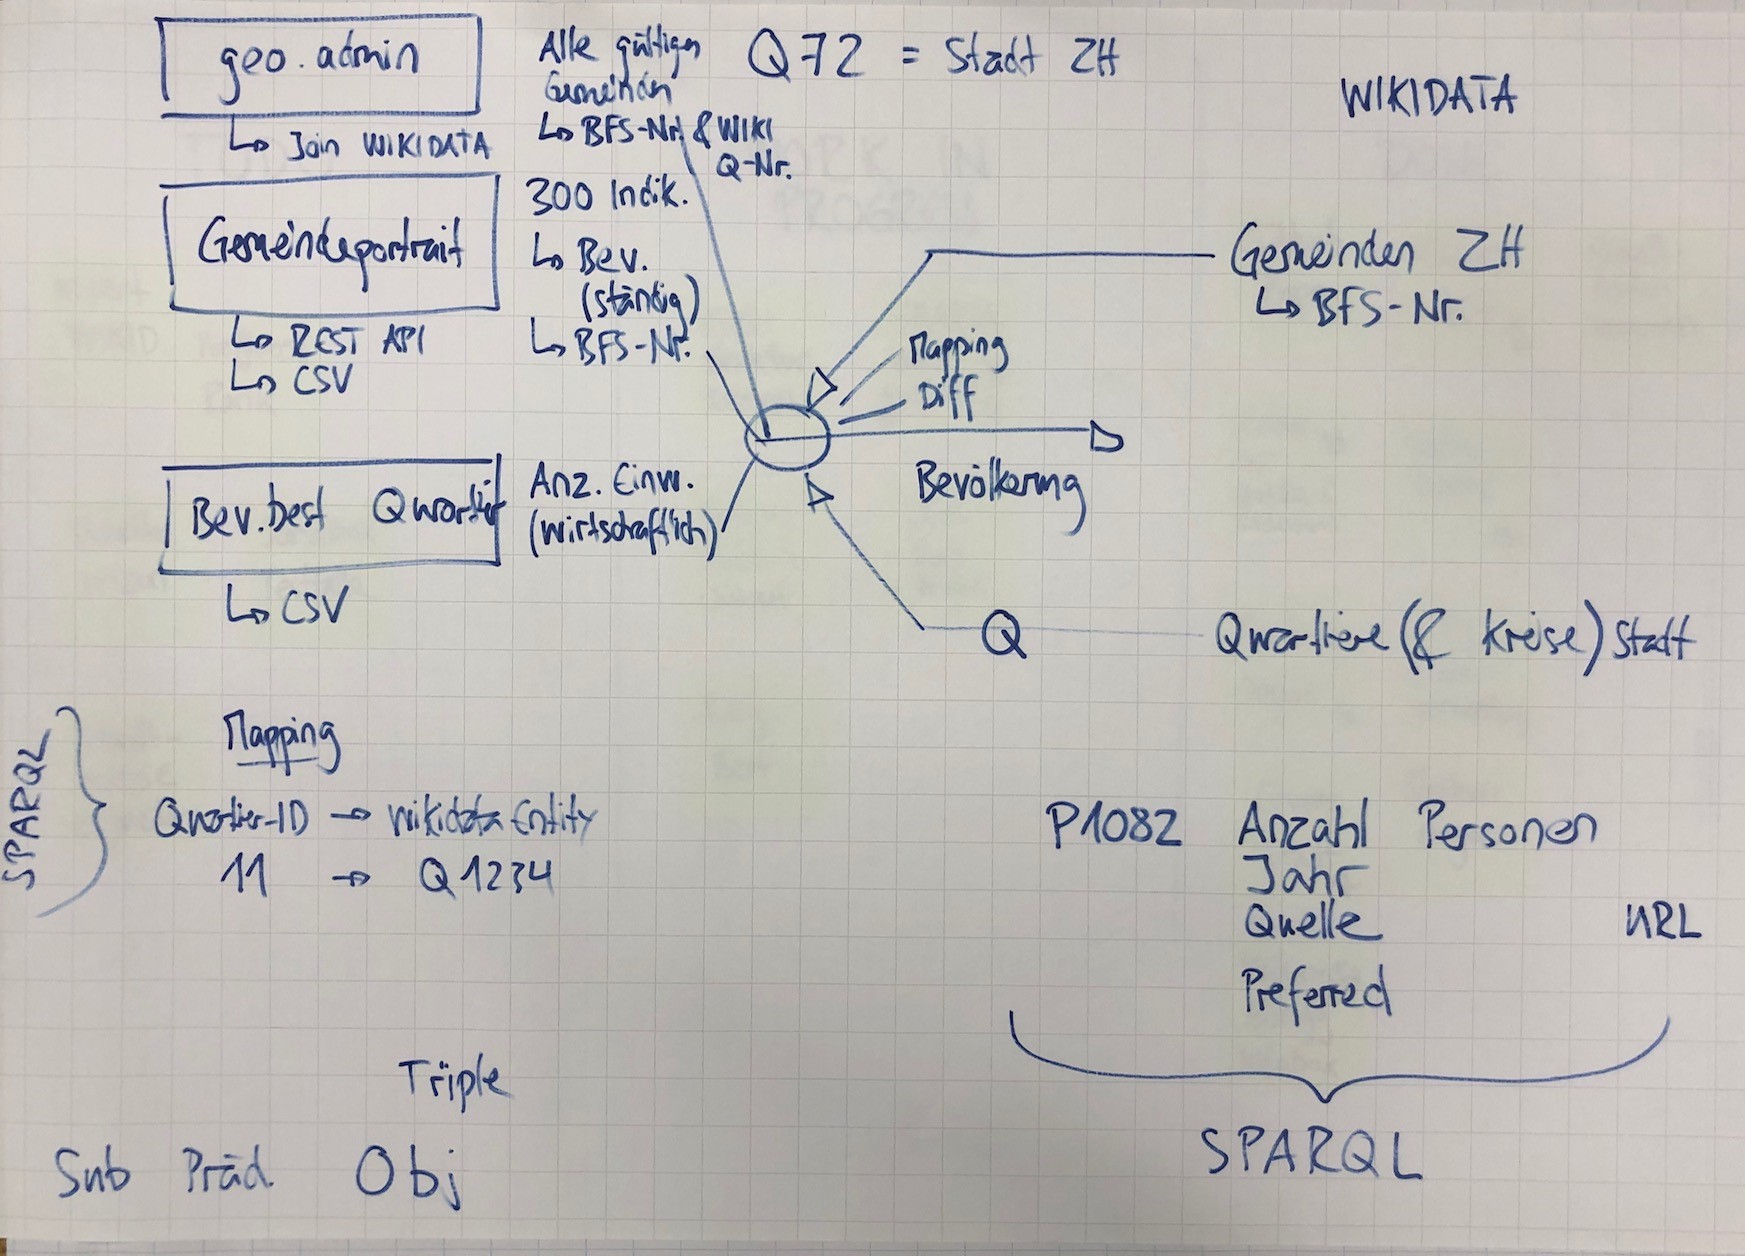 geo.admin
↳ Join WIKIDATA
Alle gültigen
Gemeinden
↳ BFS-Nr. & WIKI
Q-Nr.
Q72 = Stadt ZH
WIKIDATA
Gemeindeportrait
↳ REST API
↳ CSV
300 Indik.
↳ Bev.
(ständig)
↳ BFS-Nr.
Gemeinden ZH
↳ BFS-Nr.
Mapping
Diff
Bevölkerung
Bev.best Quartier
↳ CSV
Anz. Einw.
(wirtschaftlich)
Q
Quartiere (& Kreise) Stadt
SPARQL
Mapping
Quartier-ID → Wikidata Entity
11 → Q1234
P1082 Anzahl Personen
Jahr
Quelle URL
Preferred
SPARQL
Triple
Sub Präd Obj